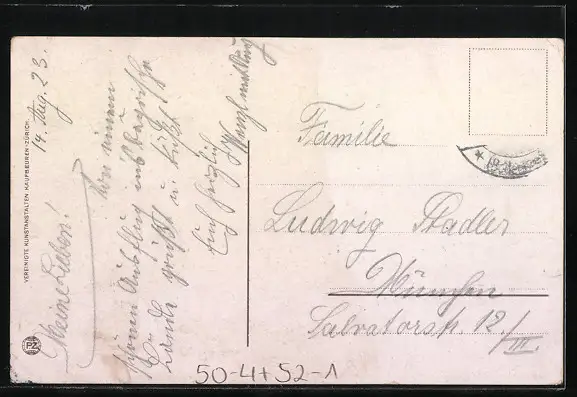 14. Aug. 23.
Meine Lieben!
Von einem
schönen Ausflug ins bayrische
Land grüßt u. küßt
Euch herzlich
VEREINIGTE KUNSTANSTALTEN, KAUFBEUREN-ZÜRICH.
PZ
Familie
Ludwig Stadler
München
Salvatorstr. 12./III.
50-4+52-1